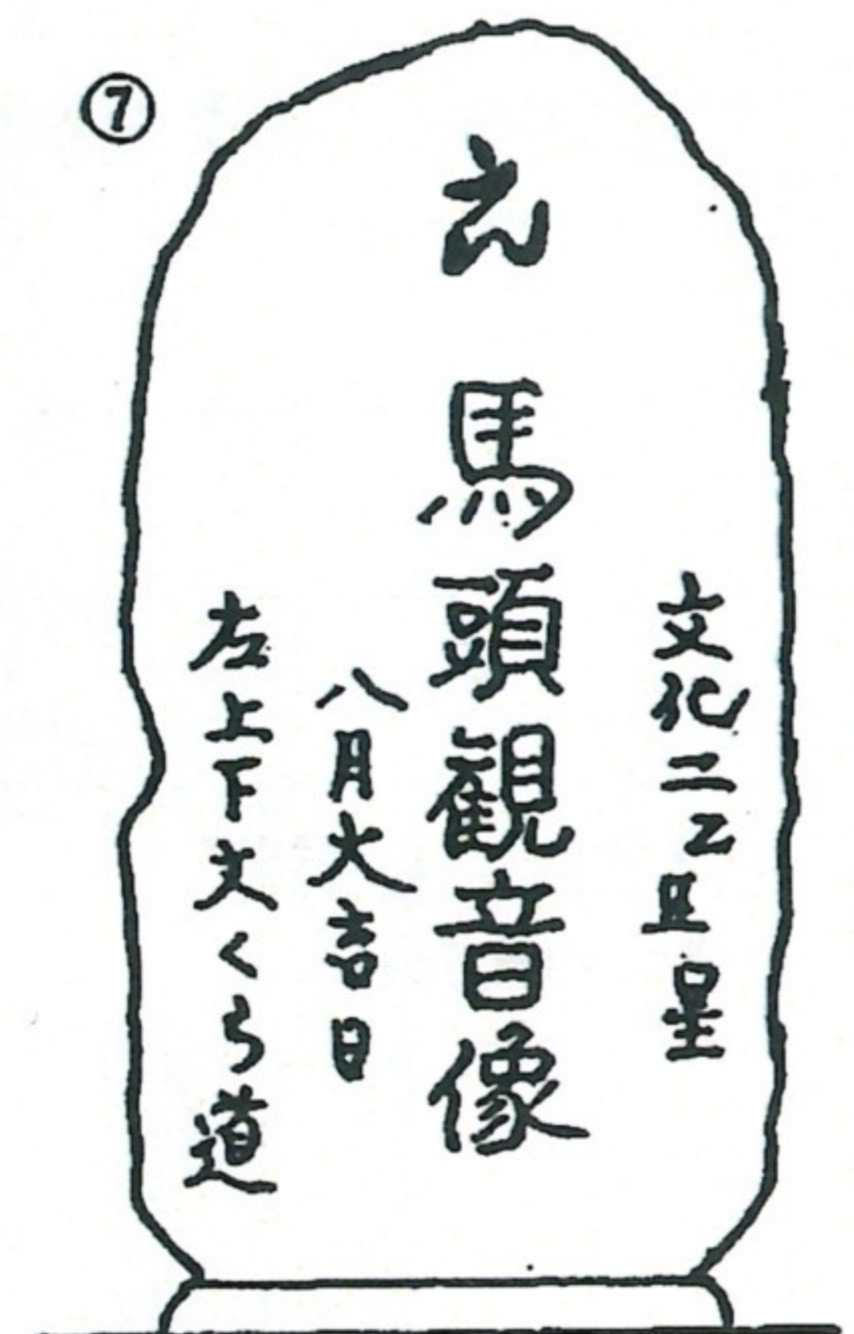 ⑦
文化二乙丑星
馬頭観音像
八月大吉日
左上下文くら道